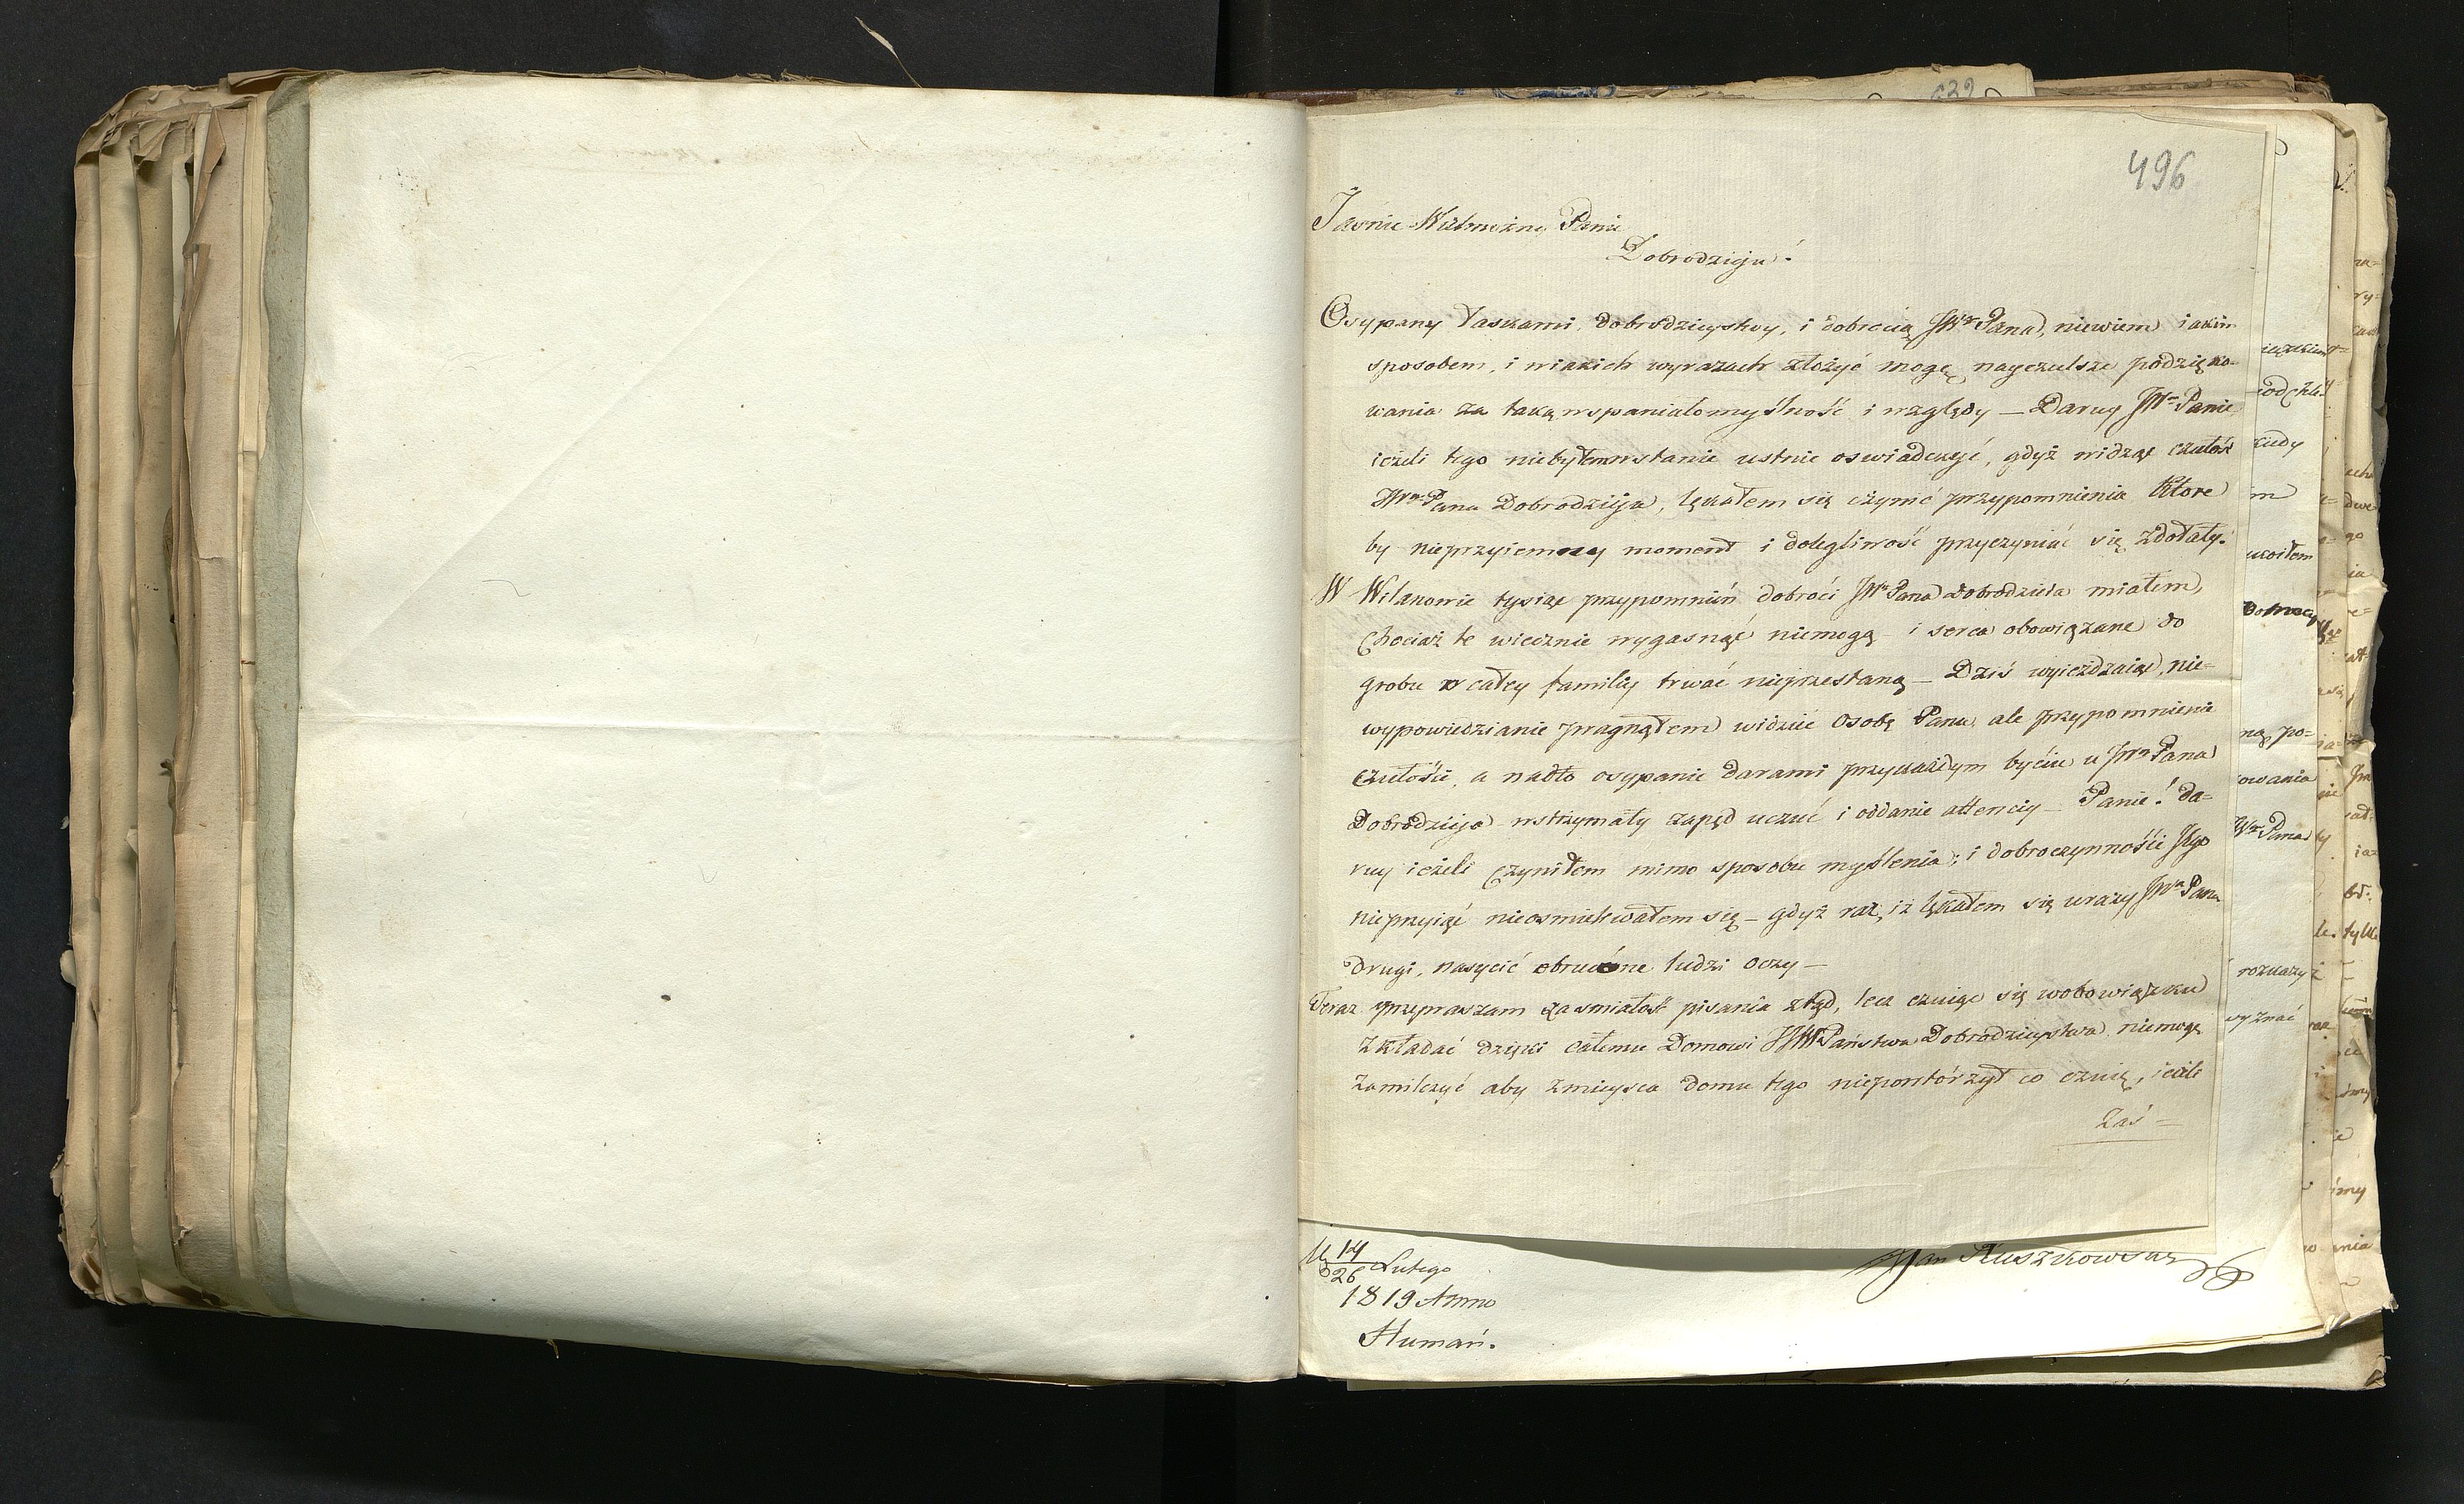 496
Jaśnie Wielmożny Panie
Dobrodzieju!
Osypany Łaskami, dobrodzieystwy, i dobrocią JWo Pana, niewiem iakim
sposobem, i wiakich wyrazach złożyć mogę nayczulsze podzięko-
wania za taką wspaniałomyślność i względy — Daruy JWn Panie
ieżeli tego niebyłem wstanie ustnie oswiadczyć, gdyż widząc czułość
JWn Pana Dobrodzieja, lękałem się czynić przypomnienia Które
by nieprzyiemny moment i dolegliwość przyczyniać się zdołały.
W Wilanowie tysiąc przypomnień dobroci JWo Pana Dobrodzieia miałem,
Chociaż te wiecznie wygasnąć niemogą — i serca obowiązane do
grobu w całey familiy trwać nieprzestaną — Dziś wyieżdzaiąc, nie-
wypowiedzianie pragnąłem widzieć Osobę Pana, ale przypomnienie
czułości, a nadto osypanie darami przykażdym byciu u JWn Pana
Dobrodzieja wstrzymały zapęd uczuć i oddanie attenciy — Panie! da-
ruy ieżeli Czyniłem mimo sposobu myślenia; i dobroczynności Jego
nieprzyiąć nieosmielwałem się — gdyż raz, iż lękałem się urazy JWo Pana
drugi, nasycić obrucone ludzi oczy —
Teraz przepraszam za smiałość pisania ztąd, lecz czuiąc się wobowiązku
Zkładać dzięki całemu Domowi JJWW Państwa Dobrodzieystwa niemogę
zamilczyć aby zmieysca domu tego niepowtórzył co czuię, ieżeli
Zaś —
14
26 Lutego
1819 Anno
Humań.
Jan Kuszkowski